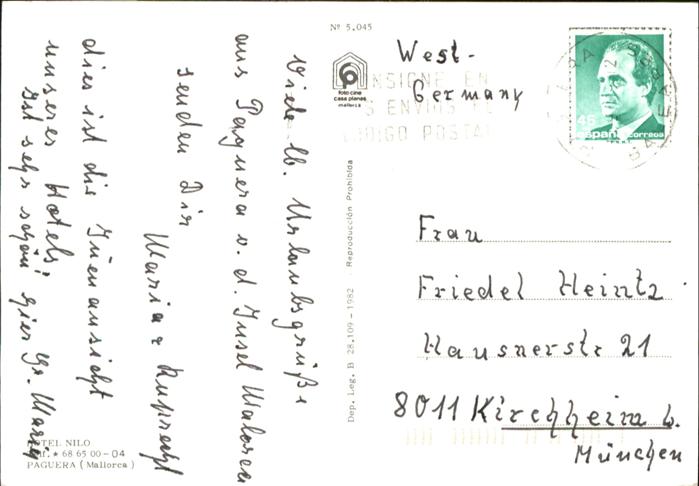 Nº 5.045
foto cine
casa planas
mallorca
NSIGNE EN
S ENVIOS EL
CODIGO POSTAL
45
españa correos
West-
Germany
Viele lb. Urlaubsgrüße
aus Paguera v. d. Insel Malorca
senden Dir
Maria + Ruprecht
dies ist die Inenansicht
unseres Hotels,
ist sehr schön hier Gr. Maria
Frau
Friedel Heintz
Hausnerstr 21
8011 Kirchheim b.
München
Dep. Leg. B 28.109 - 1982 Reproducción Prohibida
HOTEL NILO
Tel. * 68 65 00 - 04
PAGUERA (Mallorca)